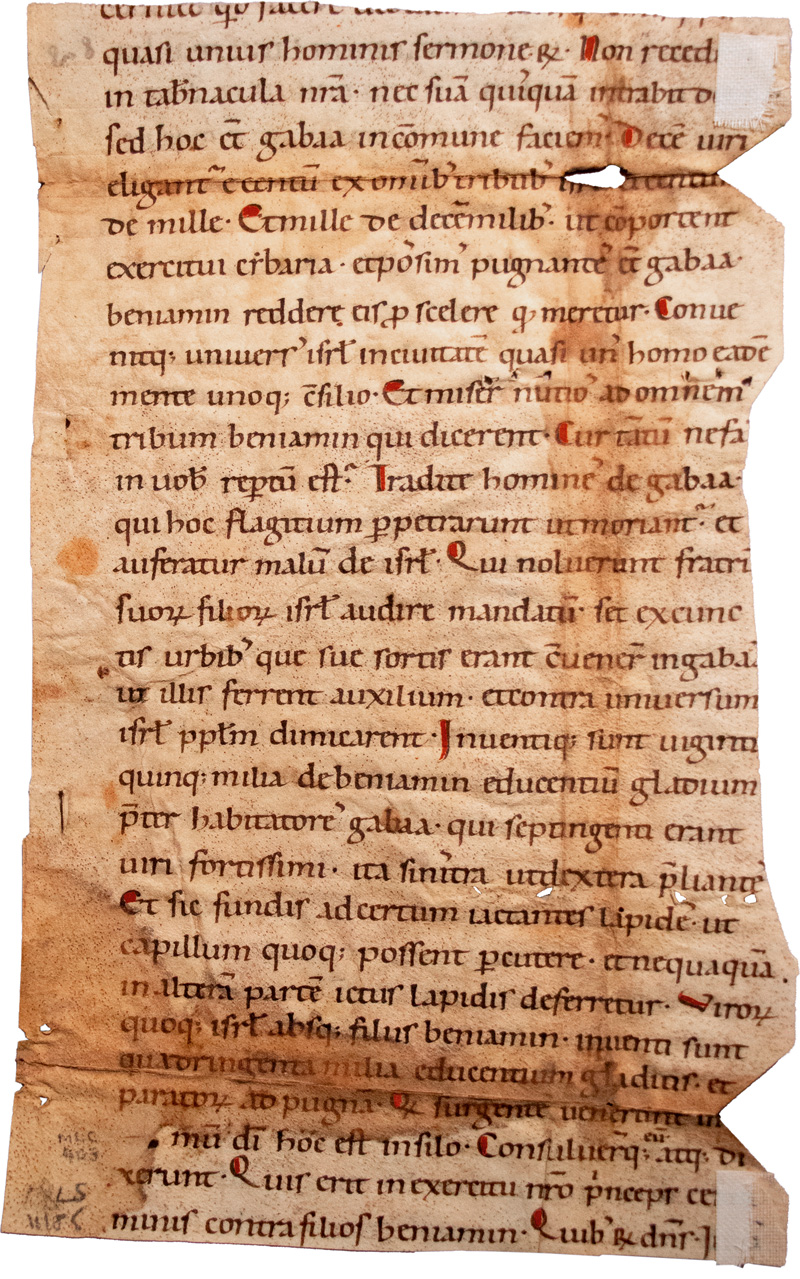 quasi unius hominis sermone ⁊ · Non reced
in tab̄nacula nr̄a · nec suā quiꝗuā intrabit do
sed hoc ct̄ gabaa incōmune faciemꝰ Decē uiri
eligantᷣ e centū ex omībꝰ tribubꝰ
de mille · Et mille de decē milibꝰ · ut cōportent
exercitui cibaria · et possimꝰ pugnante ct̄ gabaa ·
beniamin reddere eis ꝓ scelere qđ meretur · Conue
nitq; uniuersꝰ isrł in ciuitatē quasi unꝰ homo eadē
mente unoq; c̄silio · Et miser̄ nūtioˢ ad omnem
tribum beniamin qui dicerent · Cur tātū nefaˢ
in uob̄ reꝑtū est? Tradite homineˢ de gabaa ·
qui hoc flagitium ꝑpetrarunt ut moriantᷣ · et
auferatur malū de isrł · Qui noluerunt fratrū
suoꝝ filioꝝ isrł audire mandatū · set ex cunc
tis urbibꝰ que sue sortis erant c̄uener̄ in gabaa
ut illis ferrent auxilium · et contra uniuersum
isrł ppłm dimicarent · Inuentiq; sunt uiginti
quinq; milia de beniamin educentiū gladium
p̄ter habitatoreˢ gabaa · qui septingenti erant
uiri fortissimi · ita sinistra ut dextera p̄lianteˢ
Et sic fundis ad certum iactantes lapideˢ · ut
capillum quoq; possent ꝑcutere · et nequaquā
in alterā partē ictus lapidis deferretur · Viroꝝ
quoq; isrł absq; filiis beniamin · inuenti sunt
quadringenta milia educentium gladiūs · et
paratoꝝ ad pugnā · Qi surgenteˢ uenerunt in
mū dī hoc est in silo · Consulueruntq; eū atq; di
xerunt · Quis erit in exercitu nr̄o p̄nceps cer
minis contra filios beniamin · Quibꝰ ꝶ dn̄s ·